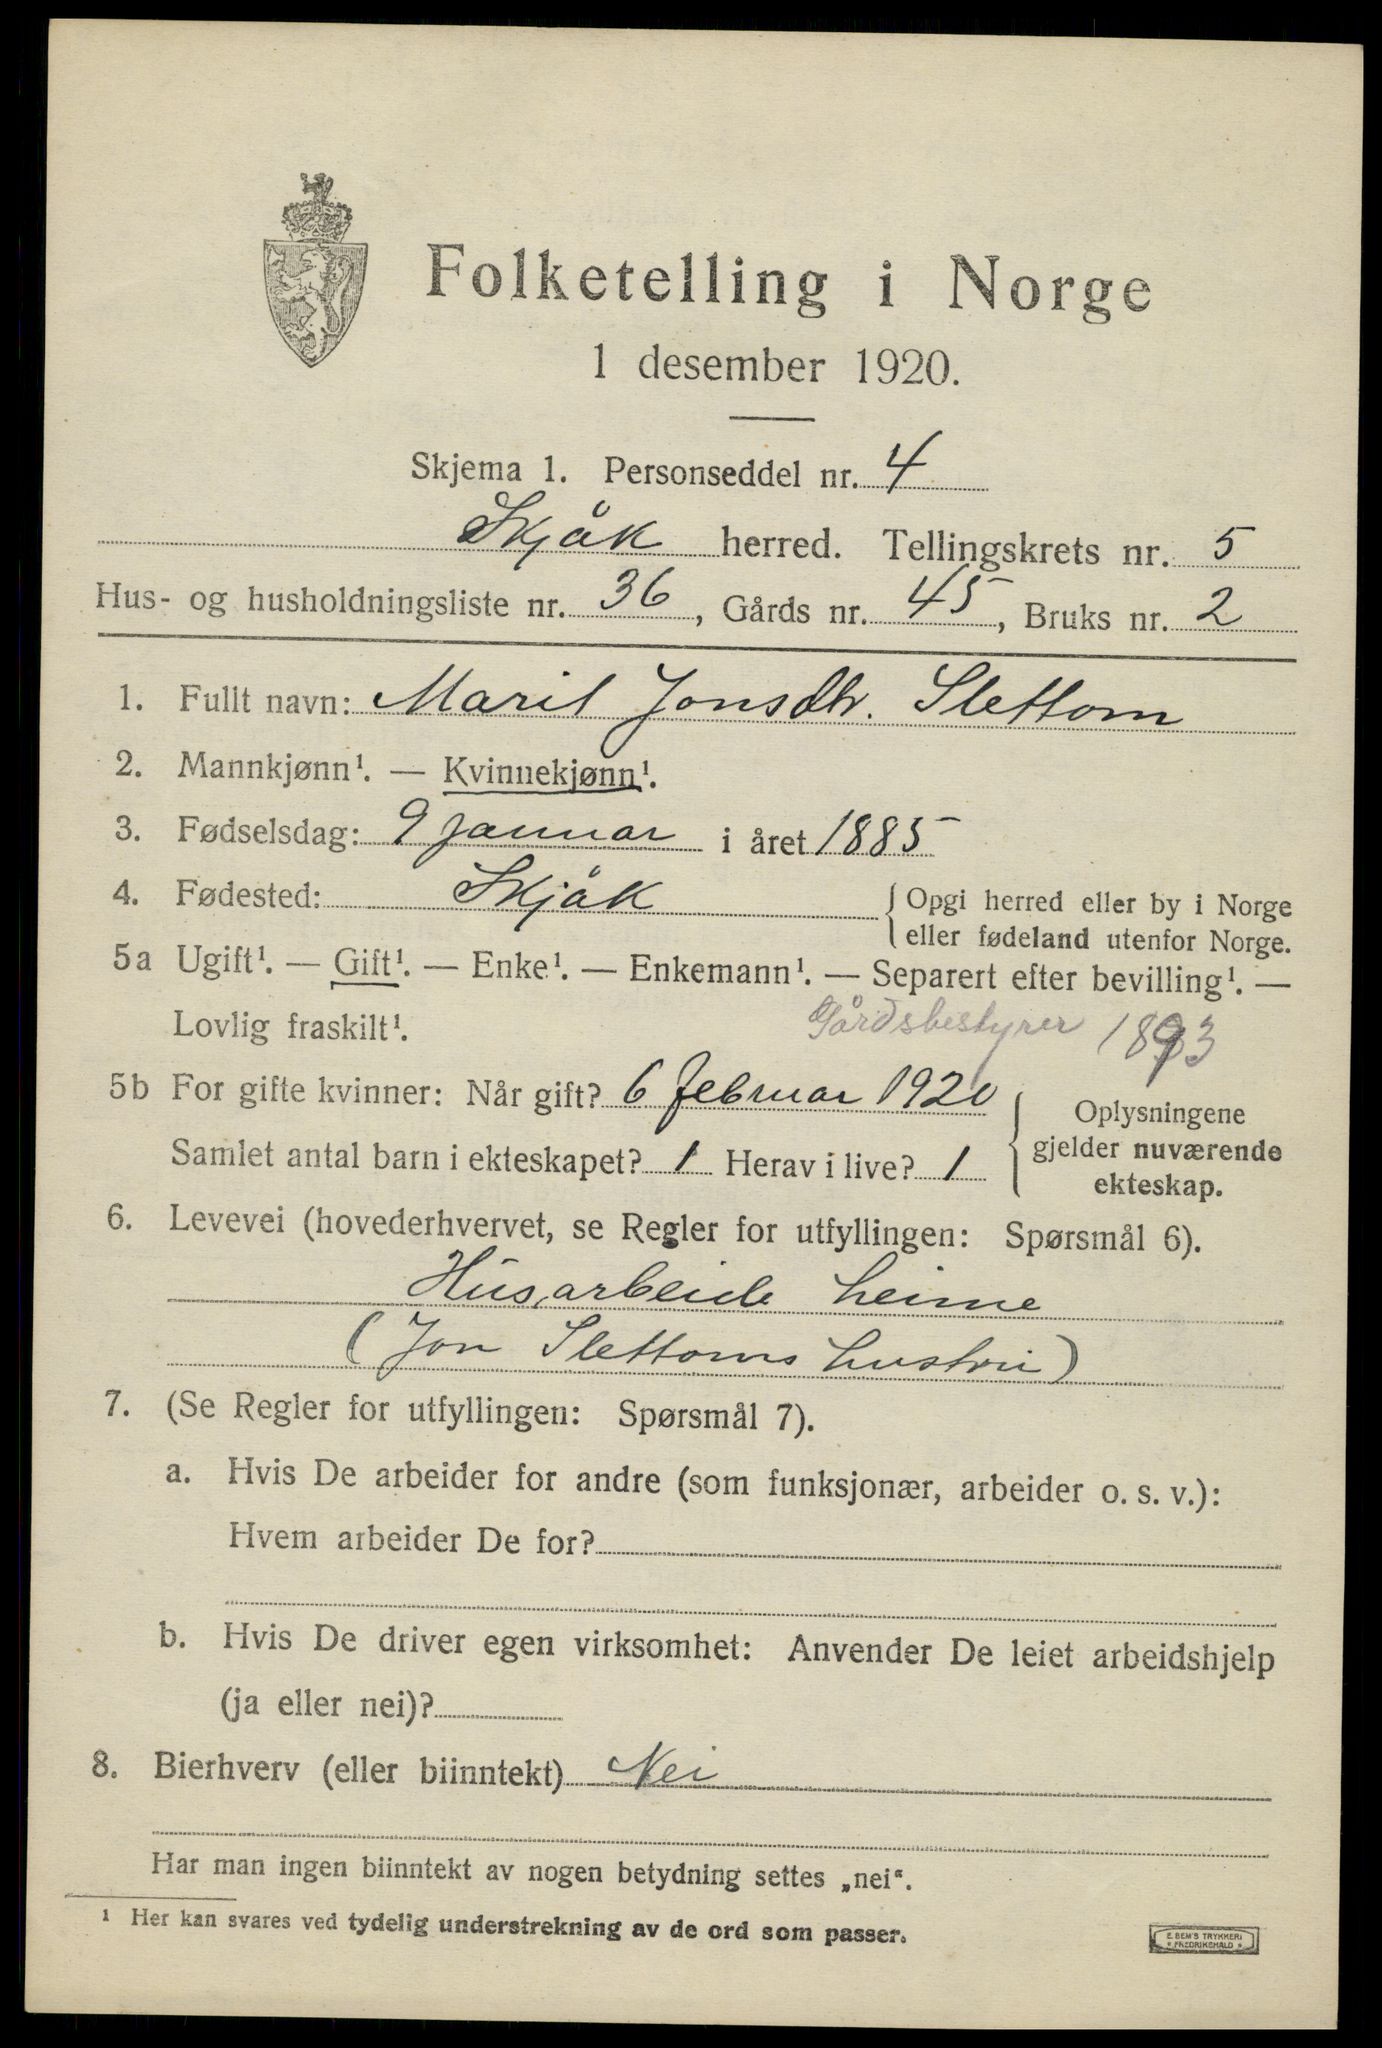 Folketelling i Norge
1 desember 1920.
Skjema 1. Personseddel nr. 4
Skjåk herred. Tellingskrets nr. 5
Hus- og husholdningsliste nr. 36, Gårds nr. 45, Bruks nr. 2
1. Fullt navn: Marit Jonsdtr. Slettom
2. Mannkjønn¹. — Kvinnekjønn¹.
3. Fødselsdag: 9 januar i året 1885
4. Fødested: Skjåk { Opgi herred eller by i Norge
eller fødeland utenfor Norge.
5a Ugift¹. — Gift¹. — Enke¹. — Enkemann¹. — Separert efter bevilling¹. —
Lovlig fraskilt¹. Gårdsbestyrer 1893
5b For gifte kvinner: Når gift? 6 februar 1920 { Oplysningene
gjelder nuværende
Samlet antal barn i ekteskapet? 1 Herav i live? 1
ekteskap.
6. Levevei (hovederhvervet, se Regler for utfyllingen: Spørsmål 6).
Husarbeide heime
(Jon Slettoms hustru)
7. (Se Regler for utfyllingen: Spørsmål 7).
a. Hvis De arbeider for andre (som funksjonær, arbeider o. s. v.):
Hvem arbeider De for?
b. Hvis De driver egen virksomhet: Anvender De leiet arbeidshjelp
(ja eller nei)?
8. Bierhverv (eller biinntekt) Nei
Har man ingen biinntekt av nogen betydning settes „nei“.
¹ Her kan svares ved tydelig understrekning av de ord som passer.
E. BEM'S TRYKKERI
* FREDRIKSHALD *